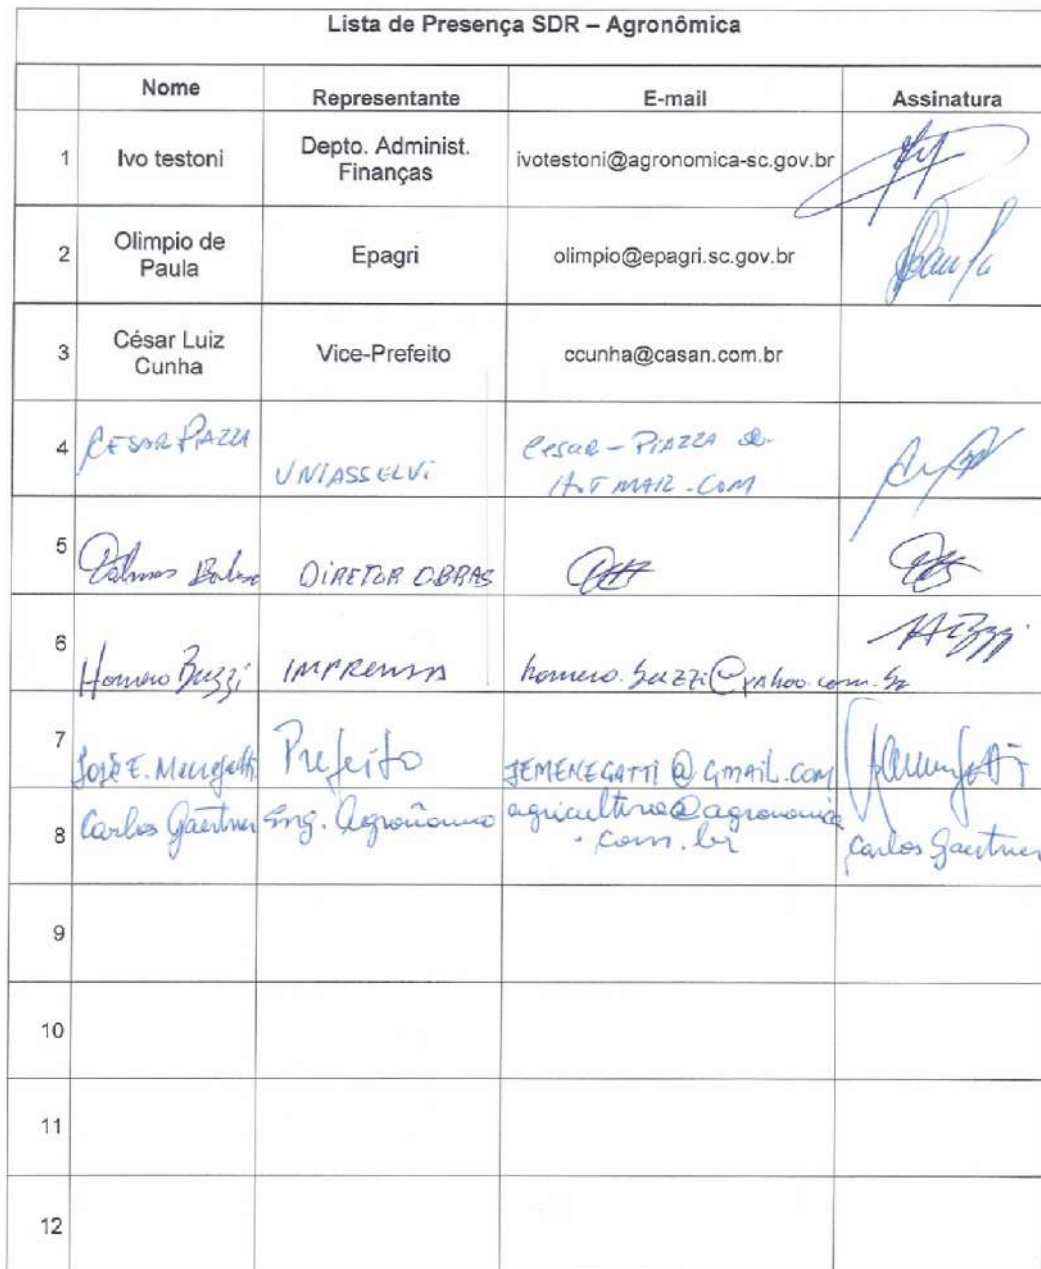 Lista de Presença SDR – Agronômica
Nome Representante E-mail Assinatura
1 Ivo testoni Depto. Administ. Finanças ivotestoni@agronomica-sc.gov.br
2 Olimpio de Paula Epagri olimpio@epagri.sc.gov.br Paula
3 César Luiz Cunha Vice-Prefeito ccunha@casan.com.br
4 CESAR PIAZZA UNIASSELVI CESAR-PIAZZA HOTMAIL.COM
5 DIRETOR OBRAS
6 Homero Buzzi IMPRENSA homero.buzzi@yahoo.com.br
7 José E. Menegatti Prefeito JEMENEGATTI@GMAIL.COM
8 Carlos Gaertner Eng. Agronômo agricultura@agronomica
.com.br Carlos Gaertner
9
10
11
12